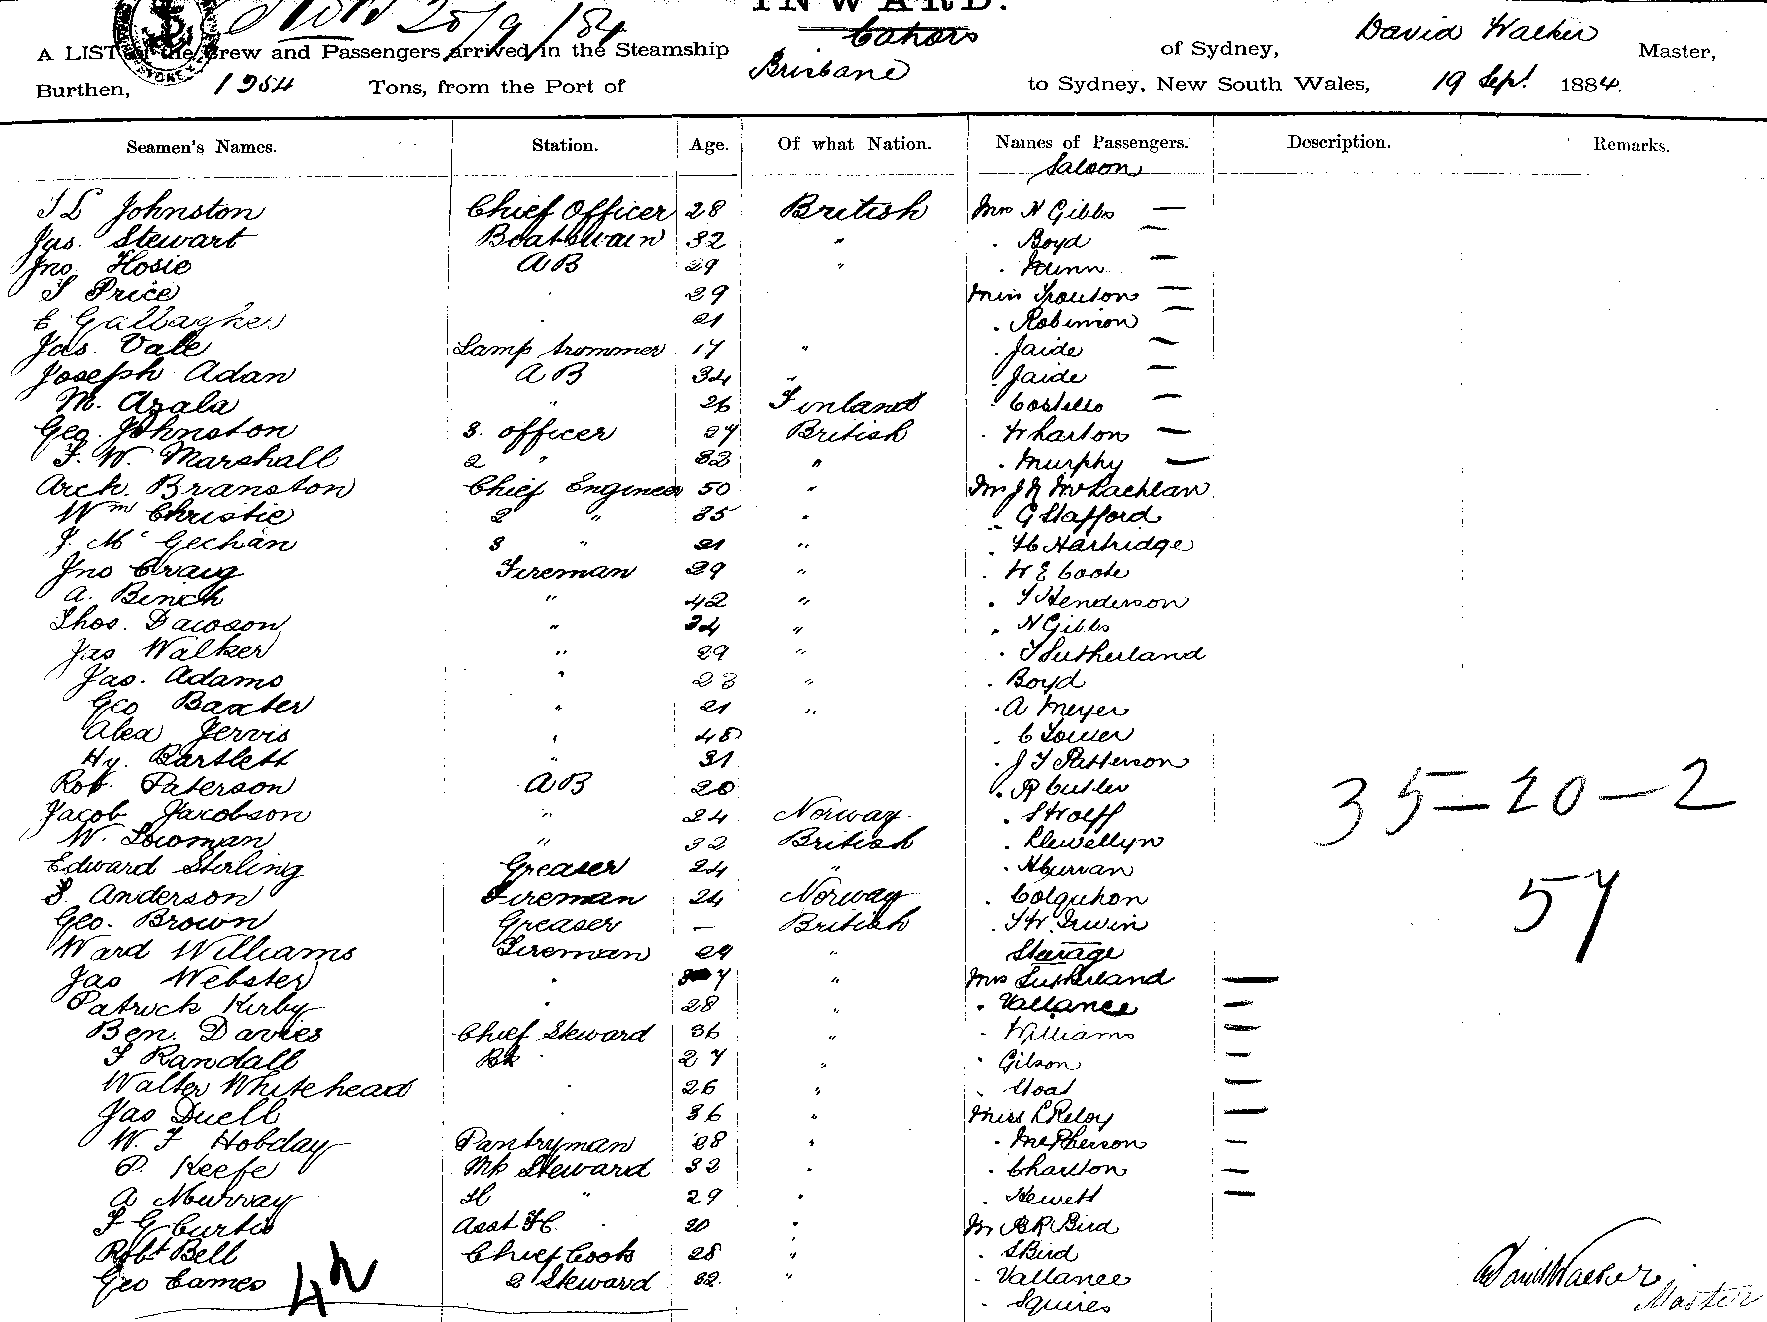 INWARD.
A LIST of the Crew and Passengers arrived in the Steamship Cahors of Sydney, David Walker Master,
Burthen, 1254 Tons, from the Port of Brisbane to Sydney, New South Wales, 19 Sept 1884.
Seamen's Names. Station. Age. Of what Nation. Names of Passengers. Description. Remarks.
Saloon
Johnston Chief Officer 28 British Mrs N Gibbs —
Jas. Stewart Boatswain 32 " . Boyd —
Jno Hosie AB 29 " . —
Price 29 Miss Trouton —
Gallagher 21 . Robinson —
Jas. Vale Lamp trommer 17 " . Jaide —
Joseph Adan AB 34 " . Jaide —
M. Azala " 26 Finland . Costello —
Geo. Johnston 3. officer 27 British . Wharton —
F. W. Marshall 2 " 33 " . Murphy —
Arch. Branston Chief Engineer 50 " Mr McLachlan
Wm Christie 2 " 35 " . G Stafford
J. Mc Gechan 3 " 21 " . Hartridge
Jno Craig Fireman 29 " . W E Coote
A. Binch " 42 " . T Henderson
Thos. Dawson " 34 " . N Gibbs
Jas Walker " 29 " . T Sutherland
Jas. Adams " 23 " . Boyd
Geo Baxter " 21 " . A Meyer
Jervis " 45 . C
Hy. Bartlett " 31 . J T Patterson
Rob. Paterson AB 20 . R Cutler
Jacob Jacobson " 24 Norway .
W. Lowman " 32 British . Llewellyn
Edward Stirling Greaser 24 " .
Anderson Fireman 24 Norway . Colquhon
Geo. Brown Greaser — British . Irwin
Ward Williams Fireman 29 " Steerage
Jas Webster " " Mrs Sutherland —
Patrick Kirby 28 " . Vallance —
Ben. Davies Chief Steward 36 " . Williams —
Randall 27 " . Gilson —
Walter Whitehead 26 " . —
Jas Duell 36 " Miss —
W. F Hobday Pantryman 28 " . McPherson —
P. Keefe Steward 32 " . Charlton —
A Murray " 29 " . Hewett —
F G Curtis Asst 20 " Mr Bird
Robt Bell Chief Cook 28 " . S Bird
Geo Eames 2 Steward 32 " . Vallance
. Squires
42
35—20—2
57
David Walker
Master